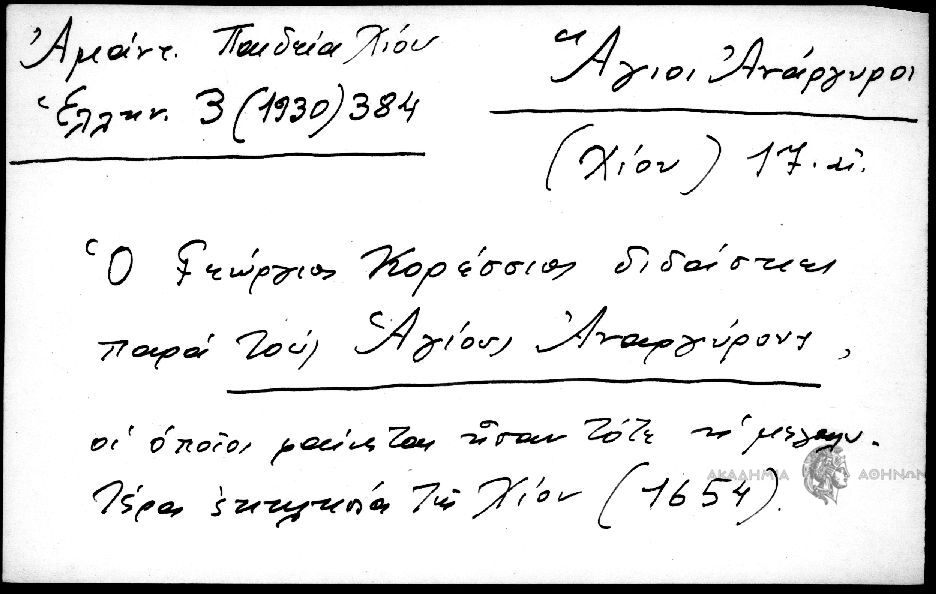 Ἀμάντ. Παιδεία Χίου
Ἑλλην. 3 (1930) 384
Ἅγιοι Ἀνάργυροι
(Χίου) 17. αἰ.
Ὁ Γεώργιος Κορέσσιος διδάσκει
παρὰ τοὺς Ἁγίους Ἀναργύρους,
οἱ ὁποῖοι φαίνεται ἦσαν τότε ἡ μεγαλυ-
τέρα ἐκκλησία τῆς Χίου (1654).
ΑΚΑΔΗΜΙΑ ΑΘΗΝΩΝ